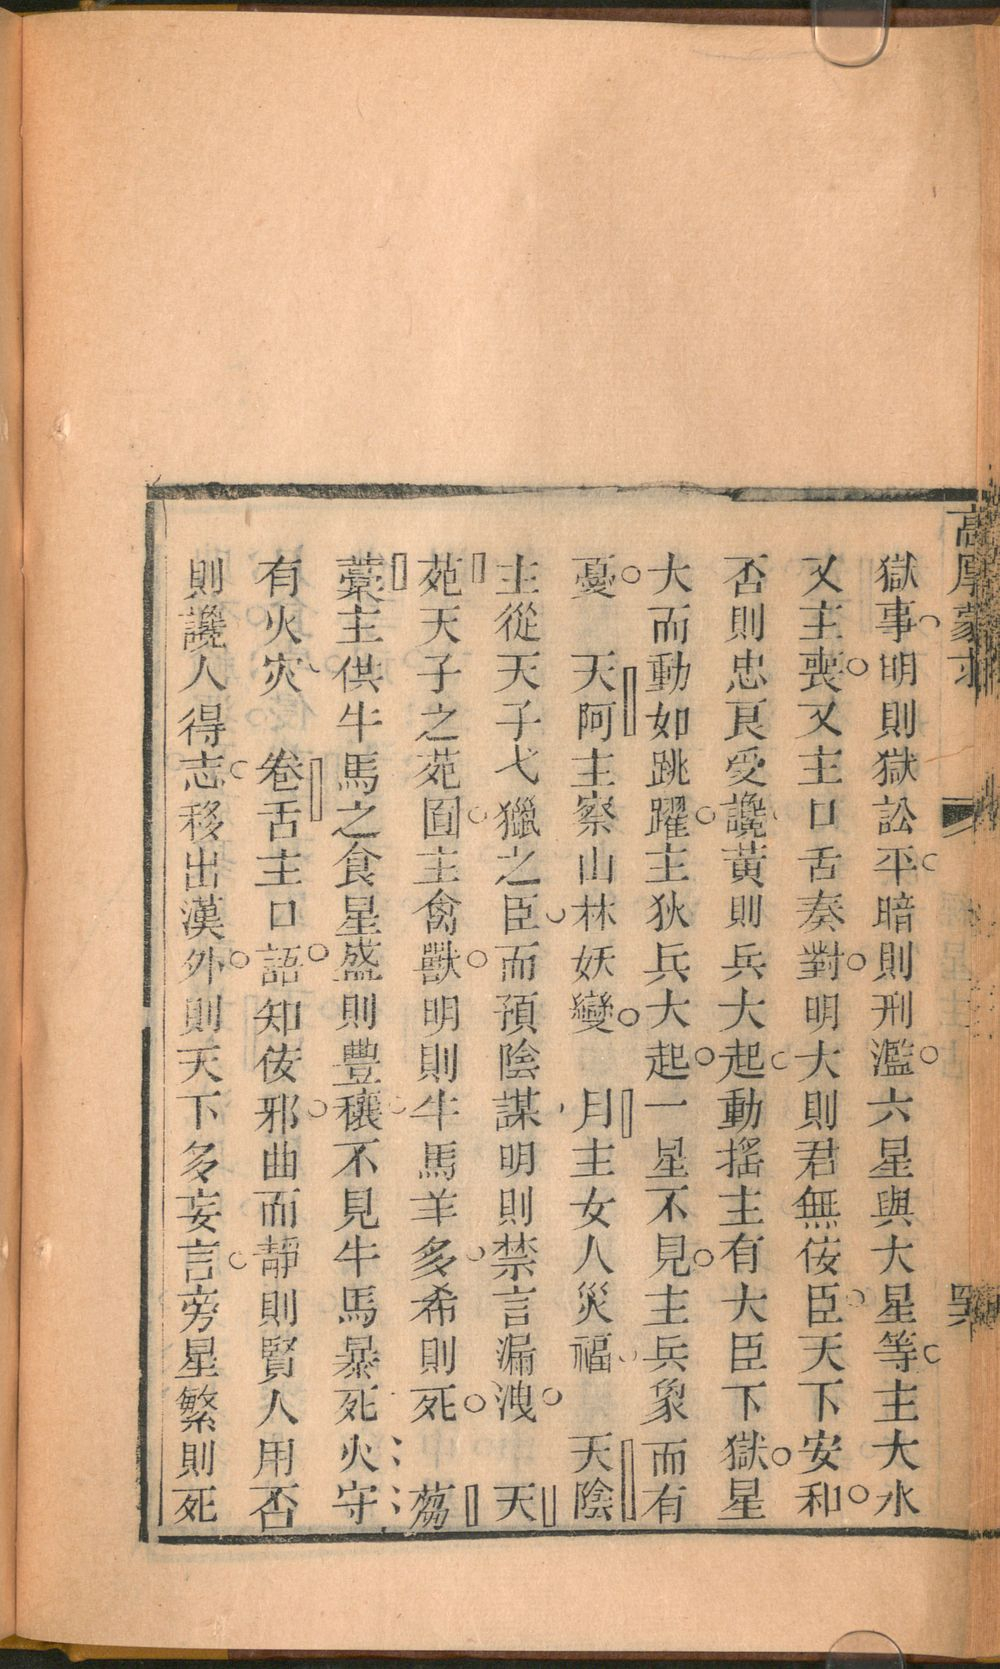 高厚蒙求
獄事明則獄訟平暗則刑濫六星與大星等主大水
又主喪又主口舌奏對明大則君無佞臣天下安和
否則忠良受讒黃則兵大起動搖主有大臣下獄星
大而動如跳躍主狄兵大起一星不見主兵象而有
憂 天阿主察山林妖變 月主女人災福 天陰
主從天子弋獵之臣而預陰謀明則禁言漏洩 天
苑天子之苑囿主禽獸明則牛馬羊多希則死 芻
藁主供牛馬之食星盛則豐穰不見牛馬暴死火守
有火灾 卷舌主口語知佞邪曲而靜則賢人用否
則讒人得志移出漢外則天下多妄言旁星繁則死